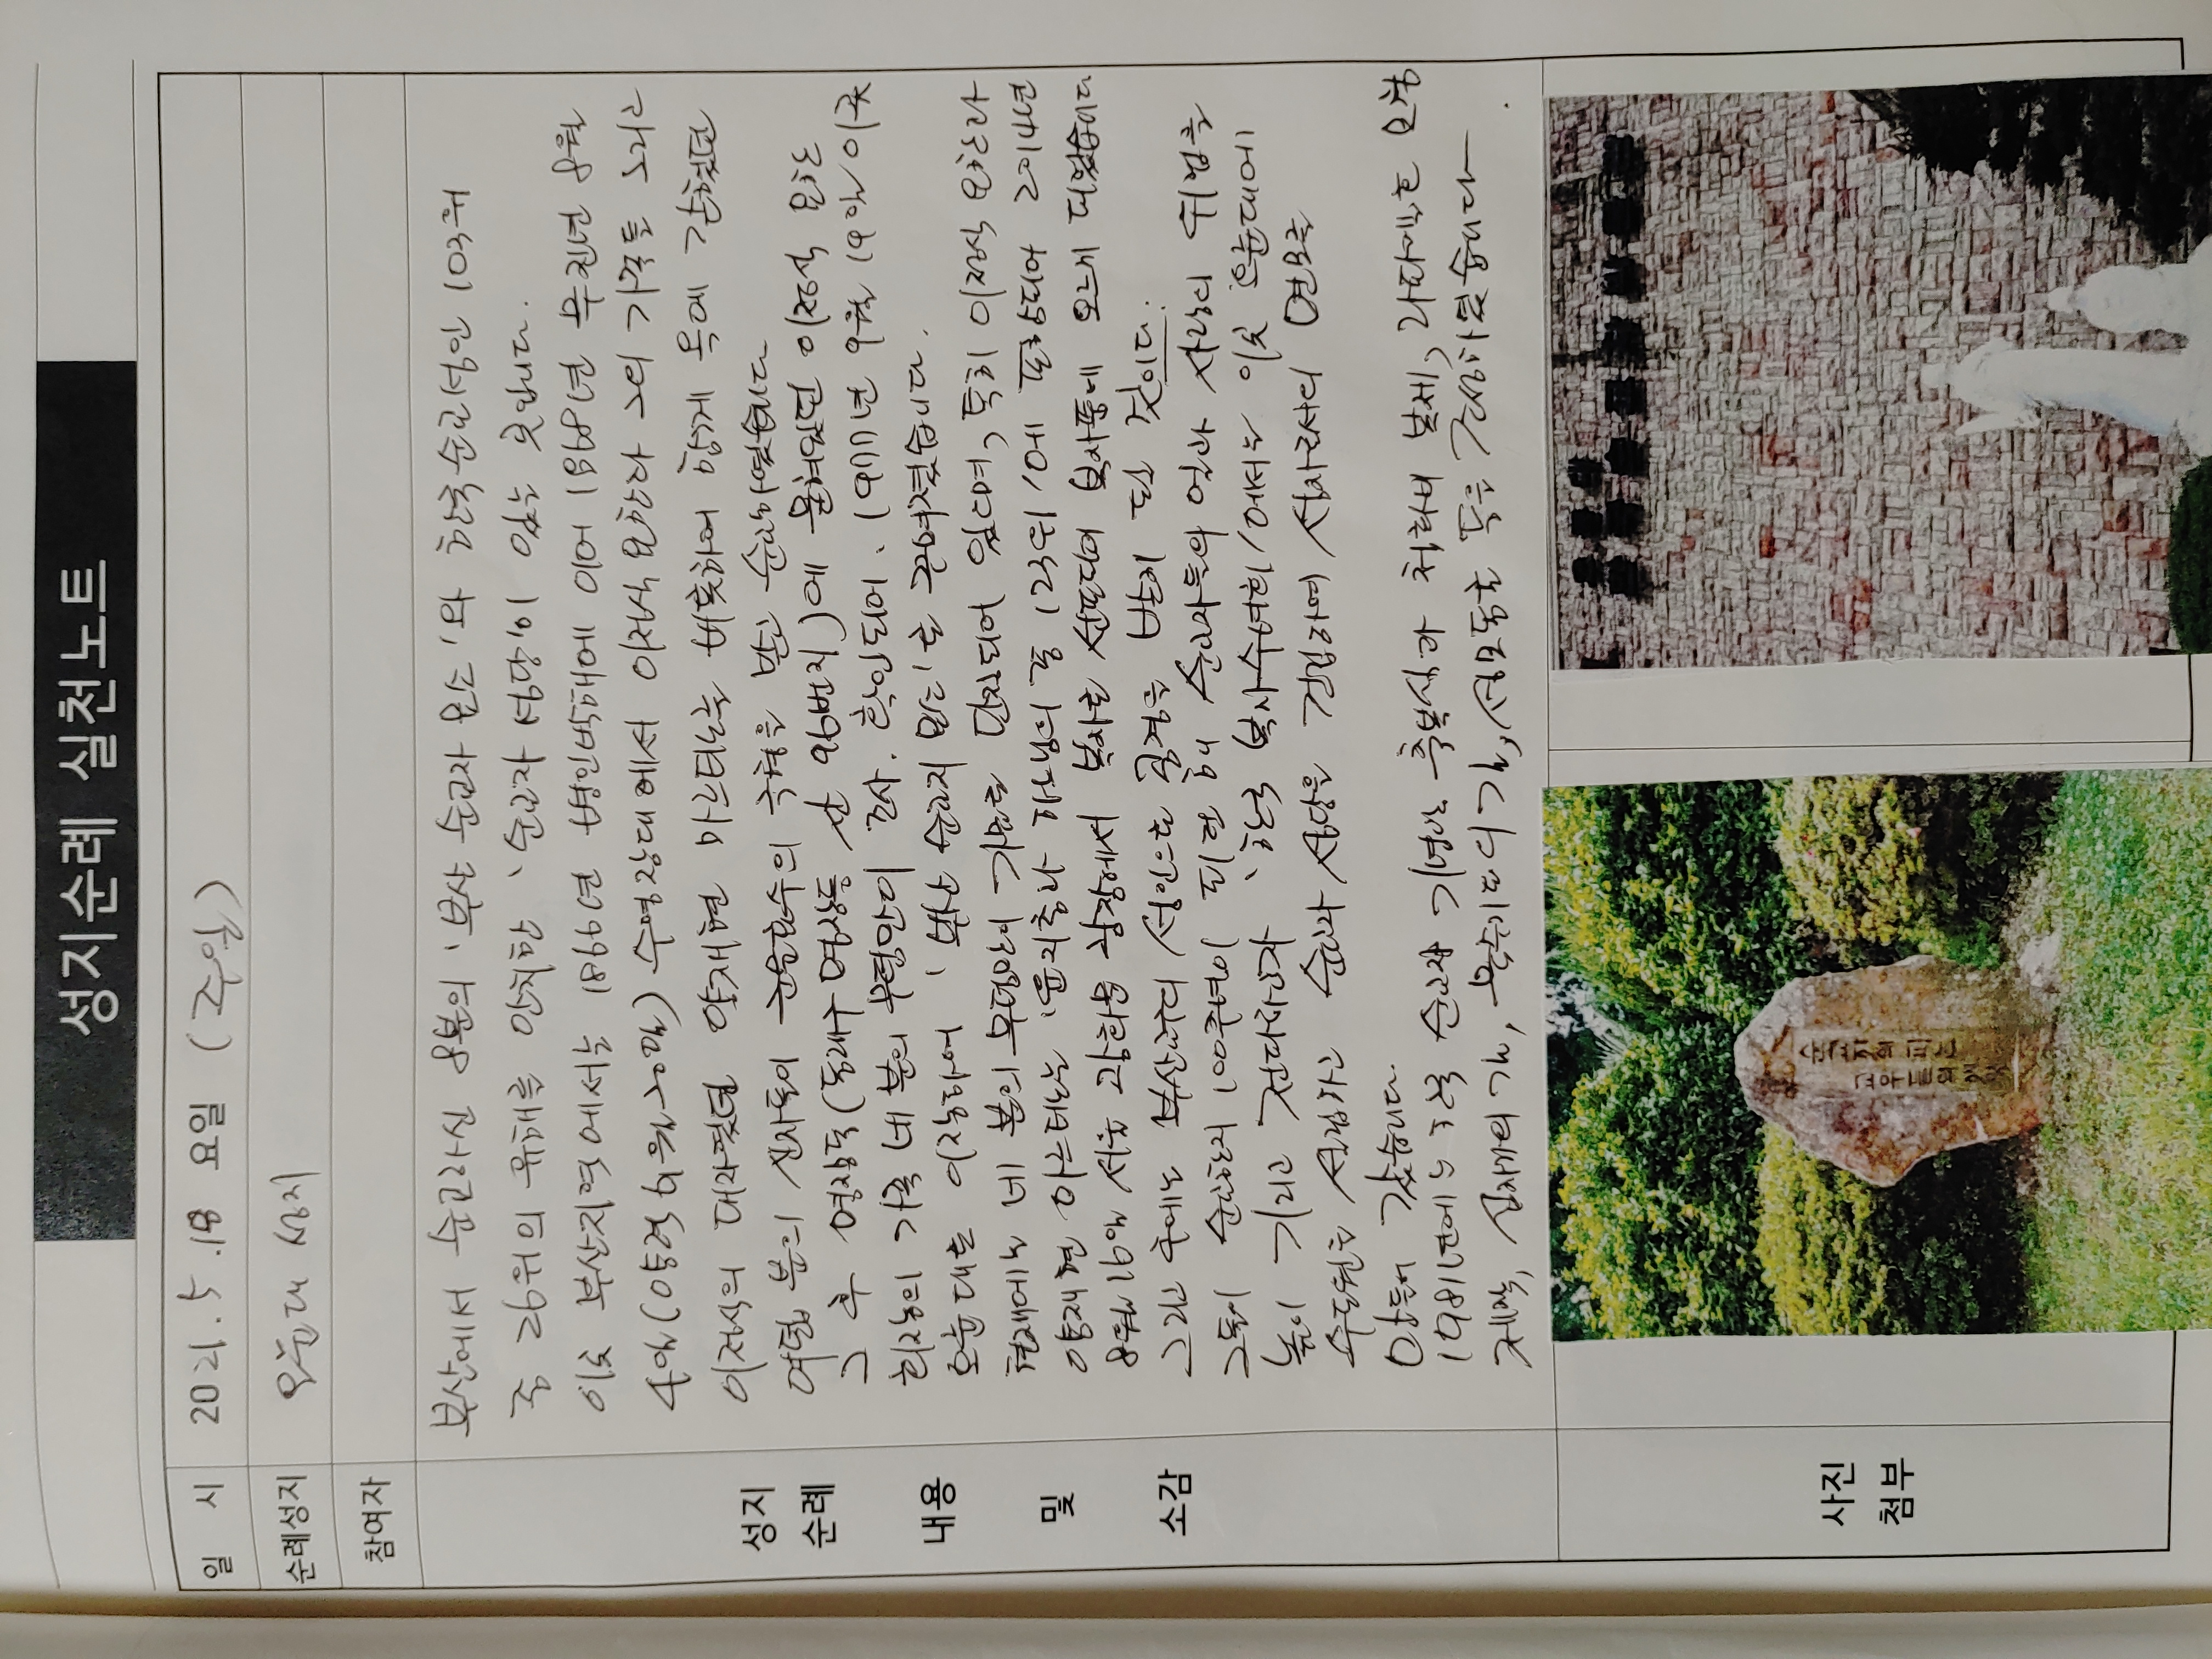 성지순례 실천노트
일 시 2021. 5. 18 요일 (주일)
순례성지 오륜대 성지
참여자
성지 순례 내용 및 소감
부산에서 순교하신 8분의 '부산 순교자 묘소'와 한국순교성인 103위
중 26위의 유해를 안치한 '순교자 성당'이 있는 곳입니다.
이곳 부산지역에서는 1866년 병인박해에 이어 1868년 무진년 8월
4일(양력 9월 20일) 수영장대에서 이정식 요한과 그의 가족들 그리고
이정식의 대자였던 양재현 마르티노를 비롯하여 함께 옥에 갇혔던
여덟 분의 신자들이 군문효수의 극형을 받고 순교하였습니다
그 후 명장동(동래구 명장동 산 96번지)에 묻혀있던 이정식 요한
회장의 가족 네 분의 무덤만이 조사. 확인되어. 1977년 9월 19일 이곳
오륜대로 이장하여 '부산 순교자 묘소'로 꾸며졌습니다.
현재에는 네 분의 무덤만이 가묘로 단장되어 있으며, 특히 이정식 요한과
양재현 마르티노는 '윤지충과 하느님의 종 123위'에 포함되어 2014년
8월 16일 서울 광화문 광장에서 복자로 선포되어 복자품에 오르게 되었습니다
그리고 후에는 부산교구의 성인으로 공경을 받게 될 것이다.
그들이 순교한지 100주년이 되던 해 순교자들의 얼과 사랑의 위업을
높이 기리고 전파하고자 '한국 복자수녀회'에서는 이곳 오륜대에
수도원을 설립하고 순교자 성당을 건립하여 성지로서의 면모를
만들어 갔습니다.
1981년에는 한국 순교자 기념관 축복식과 척화비 복제, 라파엘호 모형
제작, 십자가의 길, 묵주기도의 길, 성모동굴 등을 조성하였습니다
사진 첨부
순교자의 피는
교우들의